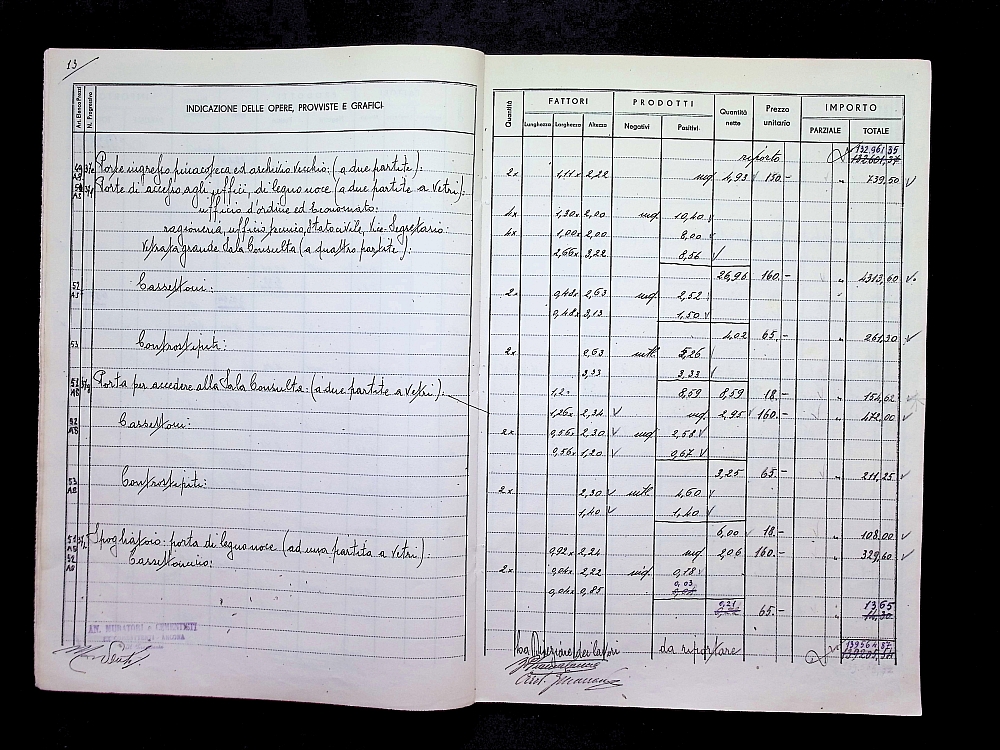 13
Art. Elenco Prezzi
N. Progressivo
INDICAZIONE DELLE OPERE, PROVVISTE E GRAFICI
Quantità
FATTORI
PRODOTTI
Quantità nette
Prezzo unitario
IMPORTO
Lunghezza Larghezza Altezza
Negativi Positivi
PARZIALE TOTALE
riporto 132.961,35
Porte ingresso pinacoteca ed archivio vecchio: (a due partite):
2x 1,11x 2,22 mq 4,93 150.- " 739,50
Porte di accesso agli uffici, di legno noce (a due partite a vetri):
ufficio d'ordine ed Economato:
4x 1,30x 2,00 mq 10,40
ragioneria, ufficio tecnico, Stato civile, Vice-Segretario:
4x 1,00x 2,00 8,00
Vetrata grande Sala Consulta (a quattro partite):
2,66x 3,22 8,56
26,96 160.- " 4313,60
52 Cassettoni:
2x 0,48x 2,63 mq 2,52
0,48x 3,13 1,50
4,02 65.- " 261,30
53 Controstipiti:
2x 2,63 ml. 5,26
3,33 3,33
8,59 8,59 18.- " 154,62
Porta per accedere alla Sala Consulta: (a due partite a vetri):
1,26x 2,34 mq 2,95 160.- " 472,00
52 Cassettoni:
2x 0,56x 2,30 mq 2,58
0,56x 1,20 0,67
3,25 65.- " 211,25
53 Controstipiti:
2x 2,30 ml. 4,60
1,40 1,40
6,00 18.- " 108,00
Spogliatoio: porta di legno noce (ad una partita a vetri):
0,92x 2,24 mq 2,06 160.- " 329,60
2x 0,04x 2,22 mq. 0,18
0,04x 0,85 0,03
0,21 65.- " 13,65
AN. MURATORI e CEMENTISTI
ANCONA
La Direzione dei lavori
da riportare 139564,87